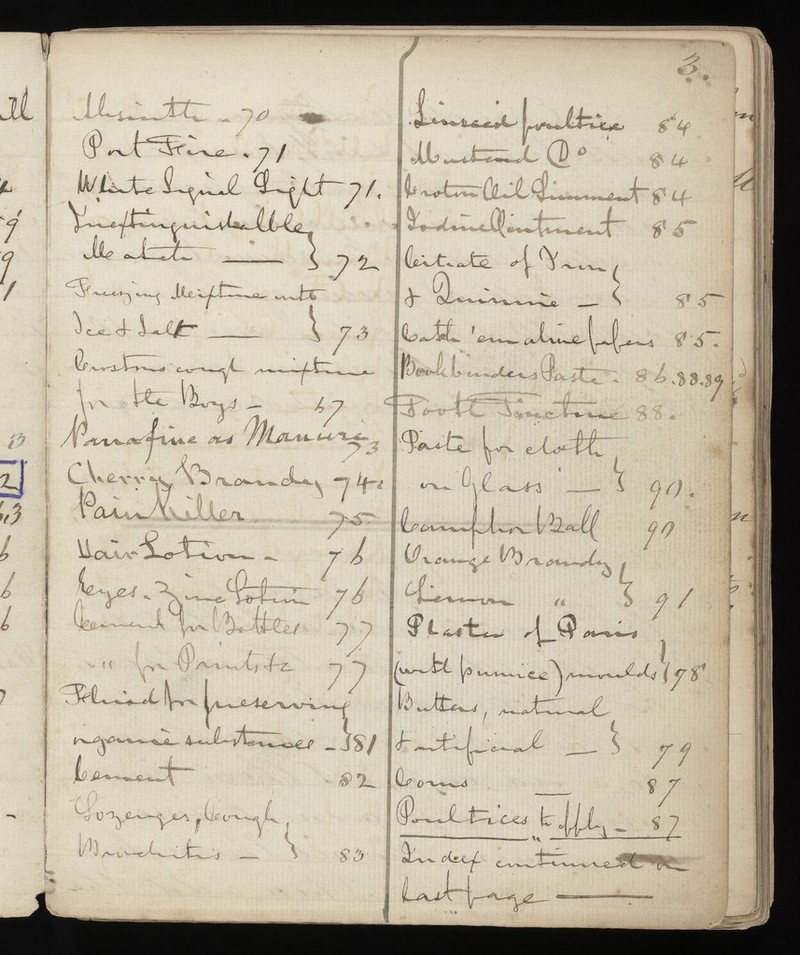 3.
Absinthe - 70
Port Fire. 71
White Signal Light 71.
Inextinguishable
Match — } 72
Freezing Mixture with
Ice & Salt — } 73
Crostons cough mixture
for the Boys - 67
Parrafine as Manure 73
Cherry Brandy 74.
Pain Killer 75
Hair Lotion - 76
Eyes. Zinc Lotion 76
Cement for Bottles 77
" for Prints &c 77
Fluid for preserving
organic substances - } 81
Cement 82
Lozenges, Cough,
Bronchitis - } 83
Linseed poultice 84
Mustard Do 84
Croton Oil Liniment 84
Iodine Ointment 85
Citrate of Iron
& Quinine - } 85
Catch 'em alive papers 85.
Bookbinders Paste. 86.88.89
Tooth Tincture 88.
Paste for cloth
on Glass — } 90.
Camphor Ball 90
Orange Brandy
Lemon " } 91
Plaster of Paris
(with pumice) moulds } 78
Butters, natural
& artificial — } 79
Corns — 87
Poultices to apply - 87
Index continued on
last page —